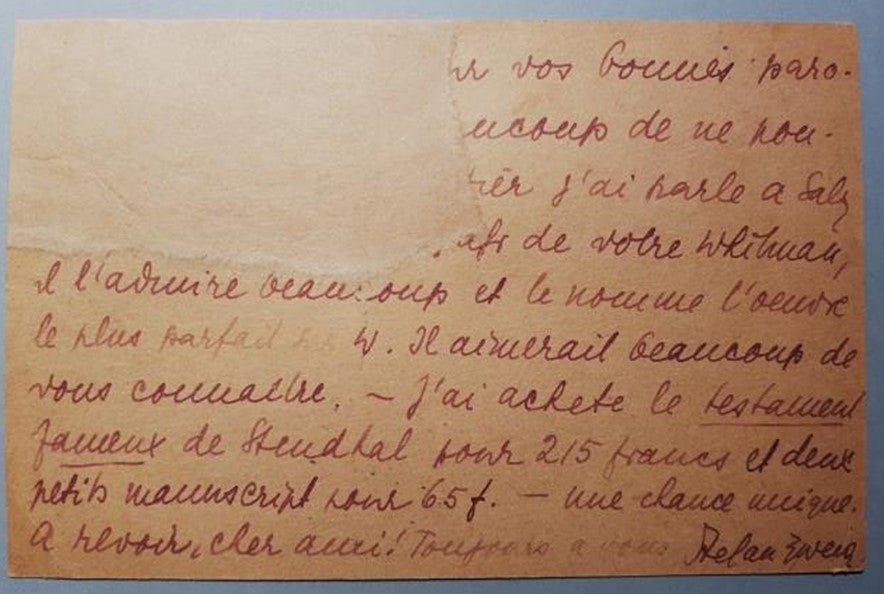 vos bonnes paro-
ucoup de ne pou-
rer j'ai parle a Salz
de votre Whitman,
il l'admire beaucoup et le nomme l'oeuvre
le plus parfait sur W. Il aimerait beaucoup de
vous connaitre. — J'ai achete le testament
fameux de Stendhal pour 215 francs et deux
petits manuscript pour 65 f. — une chance unique.
A revoir, cher ami! Toujours a vous Stefan Zweig